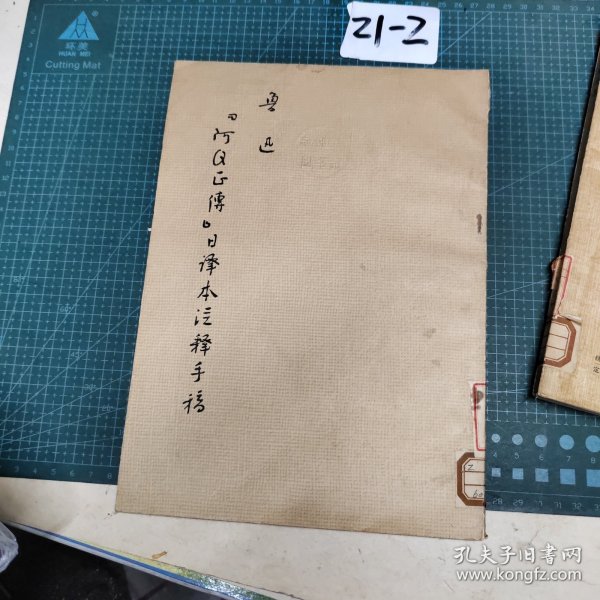 环美
HUAN MEI
Cutting Mat
21-2
鲁迅
『阿Q正傳』日译本注释手稿
定
孔夫子旧书网
www.kongfz.com